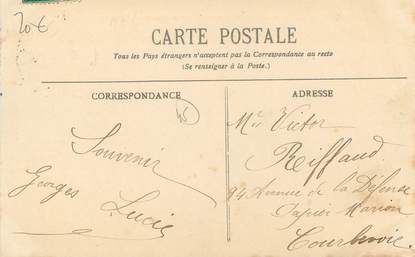 20€
CARTE POSTALE
Tous les Pays étrangers n'acceptent pas la Correspondance au recto
(Se renseigner à la Poste.)
CORRESPONDANCE
45
Souvenir
Georges
Lucie
ADRESSE
Mr Victor
Reiffaud
94 Avenue de la Défense
Papier Marion
Courbevoie